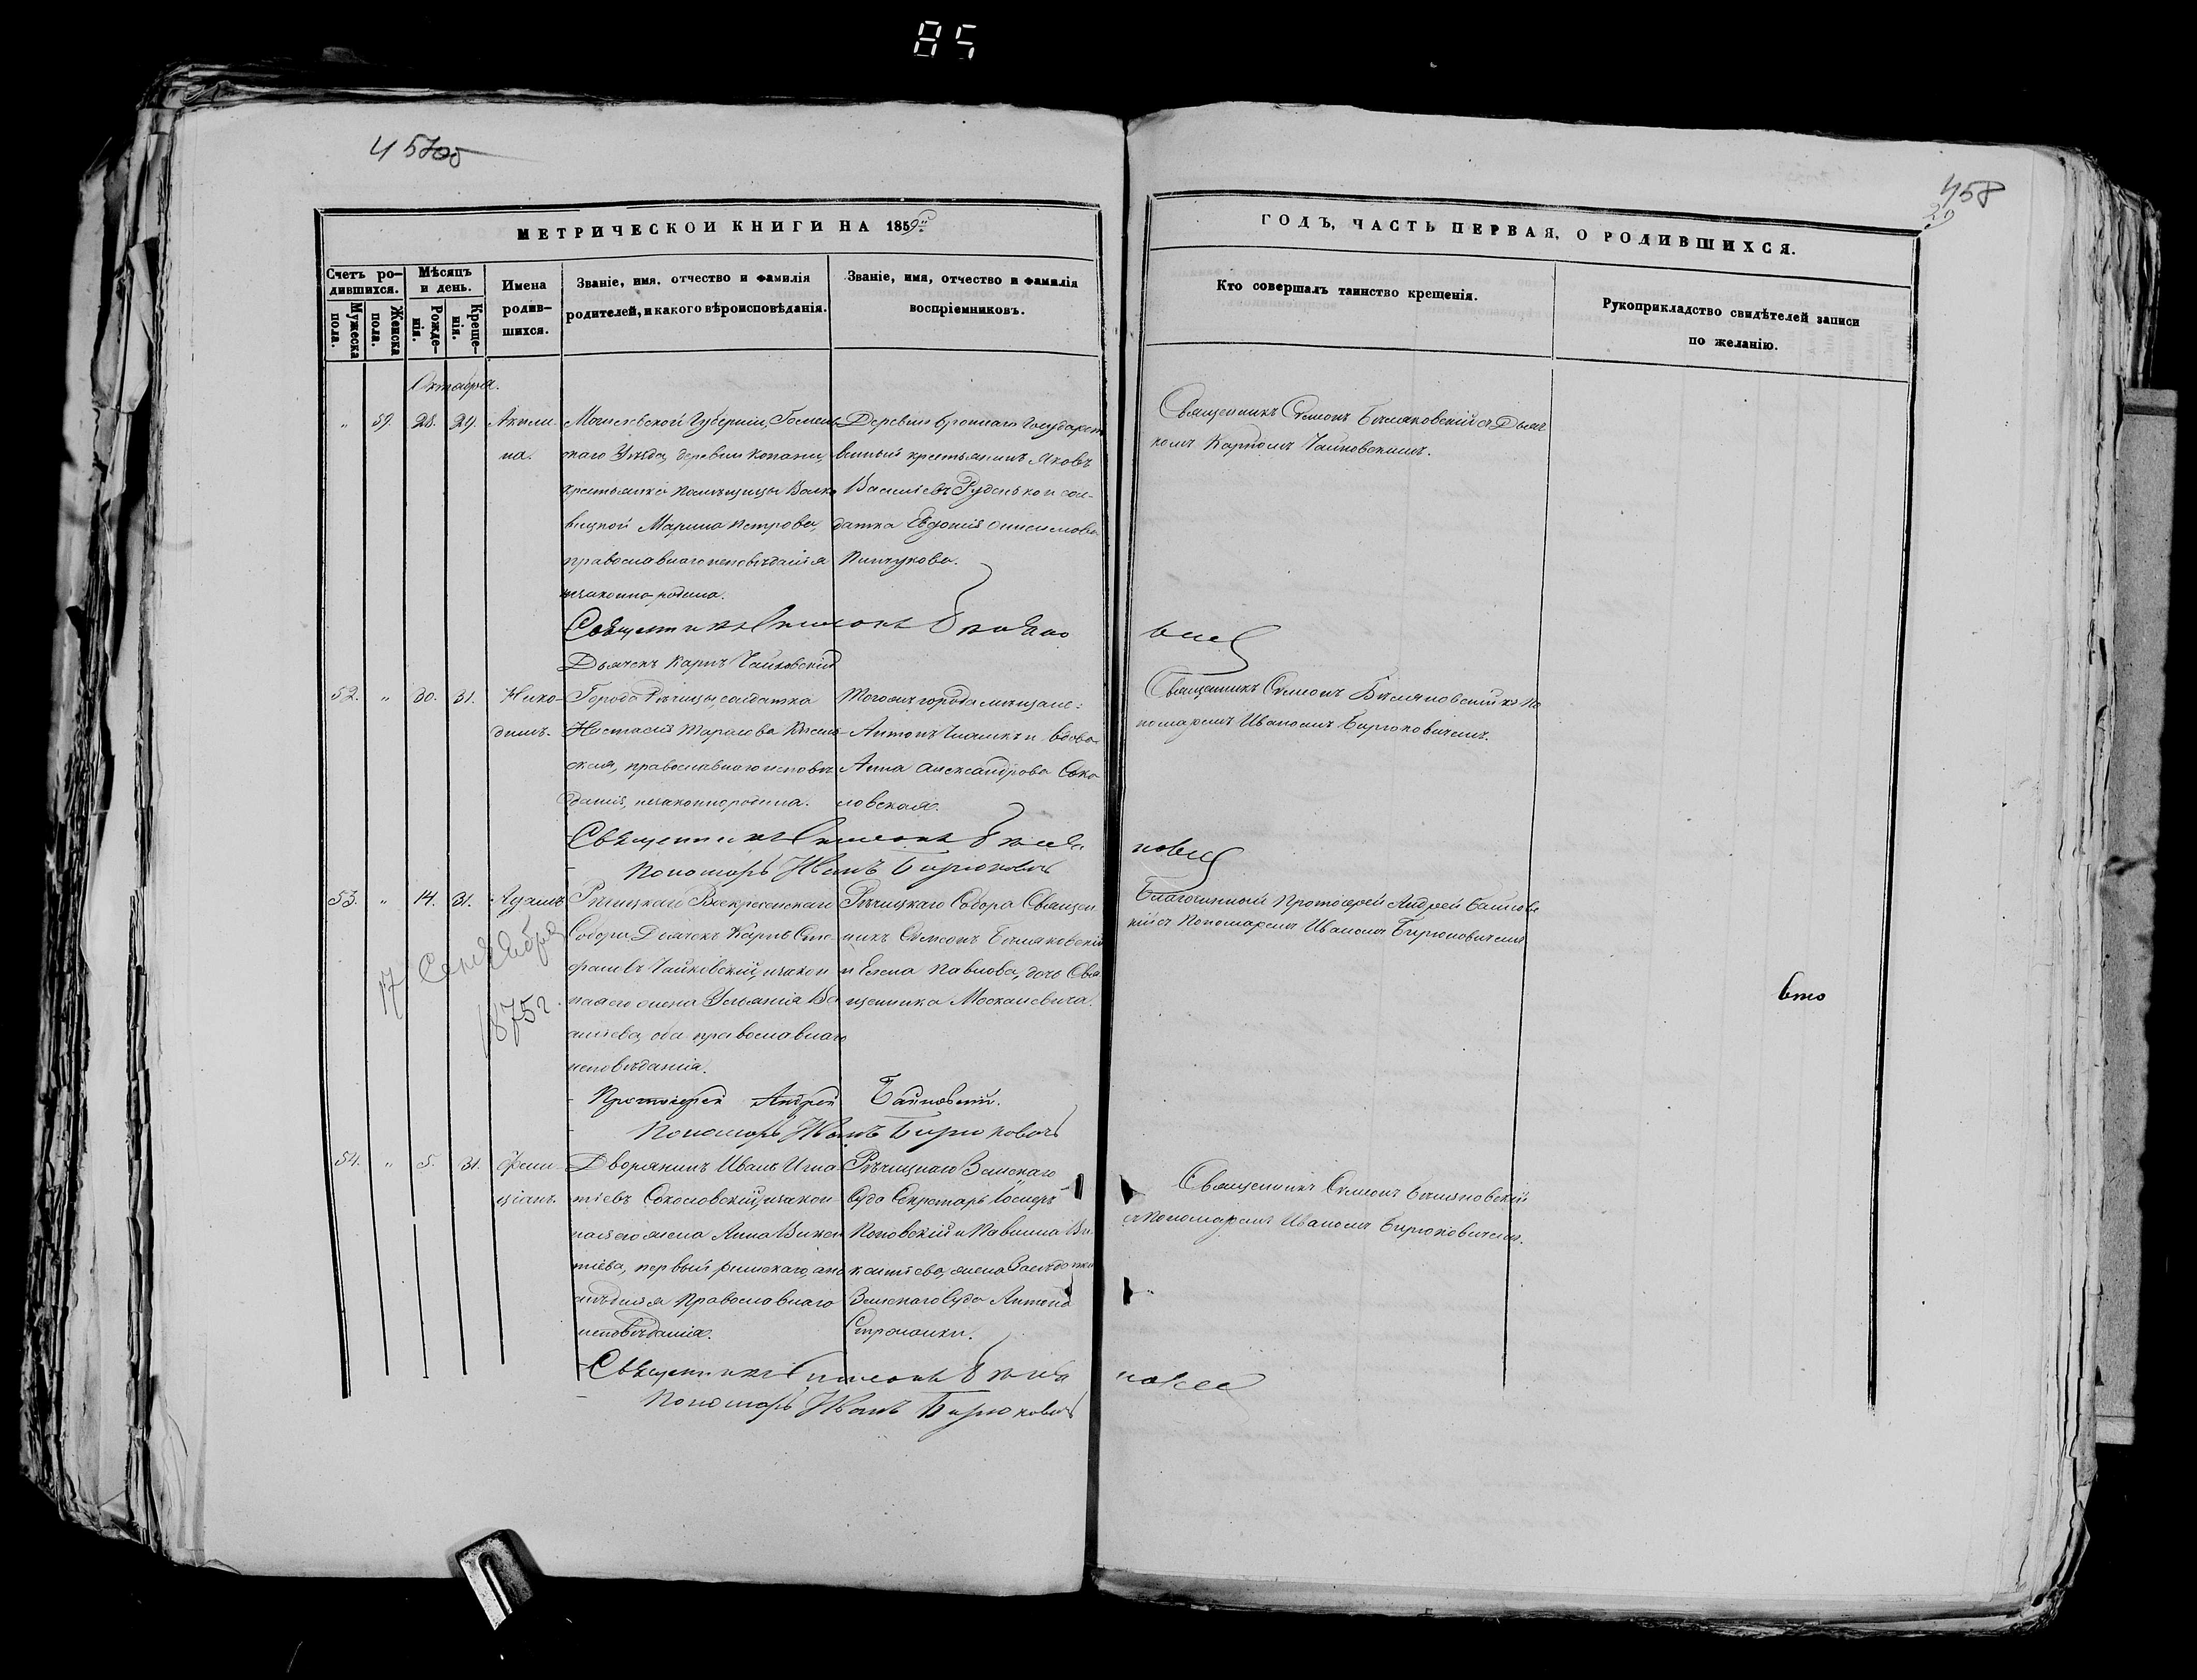 85
457
458
29
МЕТРИЧЕСКОЙ КНИГИ НА 1859й
ГОДЪ, ЧАСТЬ ПЕРВАЯ, О РОДИВШИХСЯ.
Счетъ родившихся.
Мужеска пола.
Женска пола.
Мѣсяцъ и день.
Рожденія.
Крещенія.
Имена родившихся.
Званіе, имя, отчество и фамилія родителей, и какого вѣроисповѣданія.
Званіе, имя, отчество и фамилія воспріемниковъ.
Кто совершалъ таинство крещенія.
Рукоприкладство свидѣтелей записи по желанію.
Октября.
" 59. 28. 29. Акили-
на.
Могилевской Губерніи, Гомель-
скаго Уѣзда, деревни Копани,
крестьянка помѣщицы Волко-
вицкой Марина Петрова,
православнаго исповѣданія
незаконно-родила.
Деревни Броннаго Государст-
венный крестьянинъ Яковъ
Васильевъ Руденько и сол-
датка Евдокія Онисимова
Пинчукова.
Священникъ Симеонъ Бѣляновскій съ Дьяч-
комъ Карпомъ Чайковскимъ.
Священникъ Симеонъ
Дьячекъ Карпъ Чайковскій
52. " 30. 31. Нико-
димъ.
Города Рѣчицы, солдатка
Настасія Тарасова
православнаго исповѣ-
данія, незаконнородила.
Того же города мѣщане:
Антонъ и вдова
Анна Александрова Соко-
ловская.
Священникъ Симеонъ Бѣляновскій съ По-
номаремъ Иваномъ Бирюковичемъ.
Священникъ Симеонъ
Пономарь Иванъ Бирюковичъ
53. " 14. 31. Адамъ
17 Сентября
1875 г.
Рѣчицкаго Воскресенскаго
Собора Дьячекъ Карпъ Сте-
фановъ Чайковскій, и закон-
ная его жена Ульянія Ва-
сильева, оба православнаго
исповѣданія.
Рѣчицкаго Собора Священ-
никъ Симеонъ Бѣляновскій
и Елена Павлова, дочь Свя-
щенника Москалевича.
Благочинный Протоіерей Андрей Баиновс-
кій съ Пономаремъ Иваномъ Бирюковичемъ
вто
Протоіерей Андрей Баиновскій.
Пономарь Иванъ Бирюковичъ
54. " 5. 31. Фели-
ціанъ.
Дворянинъ Иванъ Игна-
тіевъ Соколовскій, и закон-
ная его жена Анна Викен-
тіева, первый римскаго, а по-
слѣдняя Православнаго
исповѣданія.
Рѣчицкаго Земскаго
Суда Секретарь Іосифъ
Поповскій и Павлина Ви-
кентіева, жена Засѣдателя
Земскаго Суда Антона
Священникъ Симеонъ Бѣляновскій
съ Пономаремъ Иваномъ Бирюковичемъ.
Священникъ Симеонъ
Пономарь Иванъ Бирюковичъ